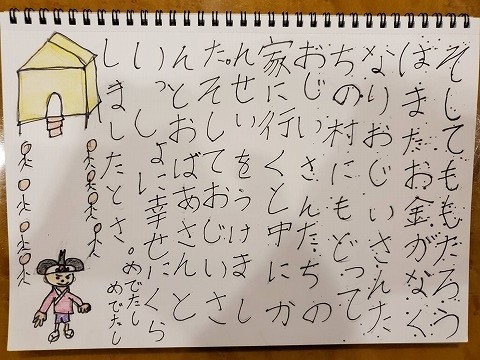 そしてももたろう
はまだお金がなく
なりおじいさんた
ちの村にもどって
おじいさんたちの
家に行くと中にか
んせいをうけまし
た。そしておじいさ
んとおばあさんと
いっしょに幸せにくら
しましたとさ
。めでたし
めでたし